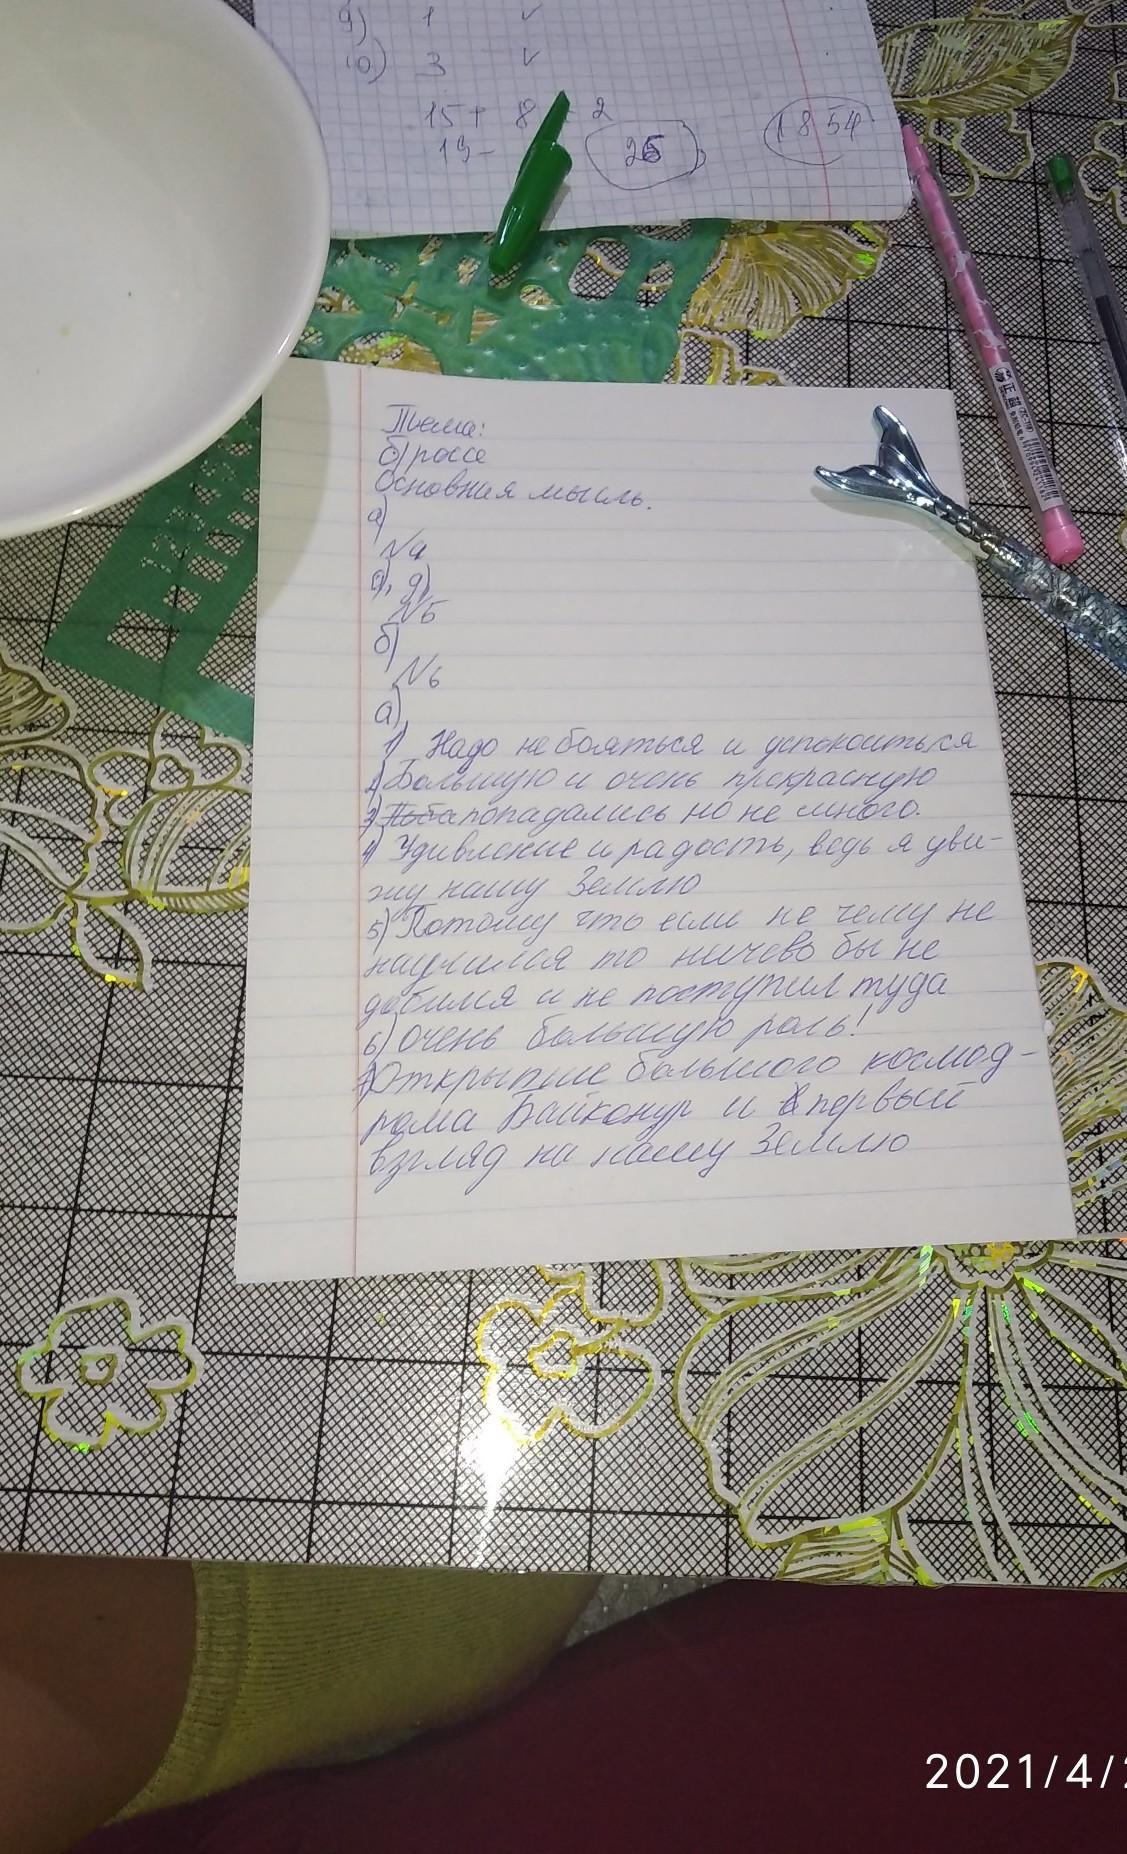 9) 1 ✓
10) 3 ✓
15+ 8 2
19-
25
1854
Тема:
б) россе
Основная мысль.
а)
№4
а, д)
№5
б)
№6
а)
1) Надо не бояться и успокоиться
2) Большую и очень прекрасную
3) попадались но не много.
4) Удивление и радость, ведь я уви-
жу нашу Землю
5) Потому что если не чему не
научился то ничево бы не
добился и не поступил туда
6) очень большую роль!
7) Открытие большого космод-
рома Байконур и первый
взгляд на нашу Землю
2021/4/2